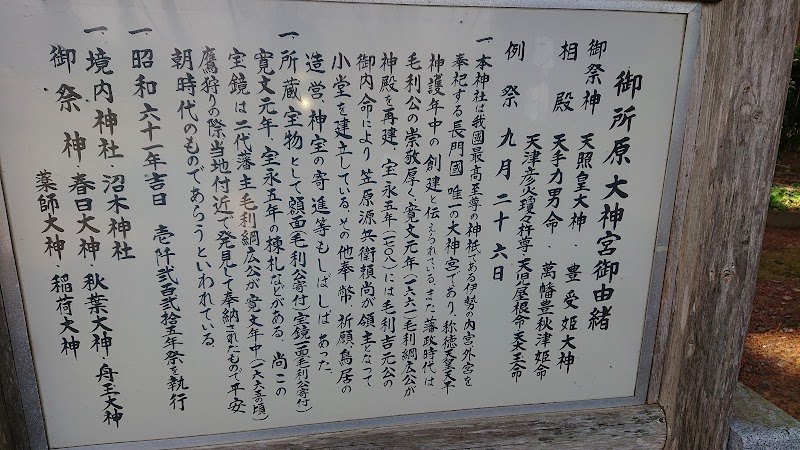 御所原大神宮御由緒
御祭神 天照皇大神・豊受姫大神
相殿 天手力男命・萬幡豊秋津姫命
天津彦火瓊々杵尊・天児屋根命・天太玉命
例祭 九月二十六日
一、本神社は我國最高至尊の神祗である伊勢の内宮・外宮を
奉祀する長門國唯一の大神宮であり、称徳天皇天平
神護年中の創建と伝えられている。また藩政時代は
毛利公の崇敬厚く寛文元年(一六六一)毛利綱広公が
神殿を再建、宝永五年(一七〇八)には毛利吉元公の
御内命により笠原源兵衛頼尚が領主となって
小堂を建立している。その他奉幣・祈願・鳥居の
造営、神宝の寄進等もしばしばあった。
一、所蔵宝物として額面毛利公寄付・宝鏡一面毛利公寄付)
寛文元年・宝永五年の棟札などがある。尚この
宝鏡は二代藩主毛利綱広公が寛文年中(一六六五の頃)
鷹狩りの際当地付近で発見して奉納されたもので平安
朝時代のものであろうといわれている。
一、昭和六十一年吉日 壱阡弐百弐拾五年祭を執行
一、境内神社 沼木神社
御祭神・春日大神・秋葉大神・舟玉大神
薬師大神・稲荷大神